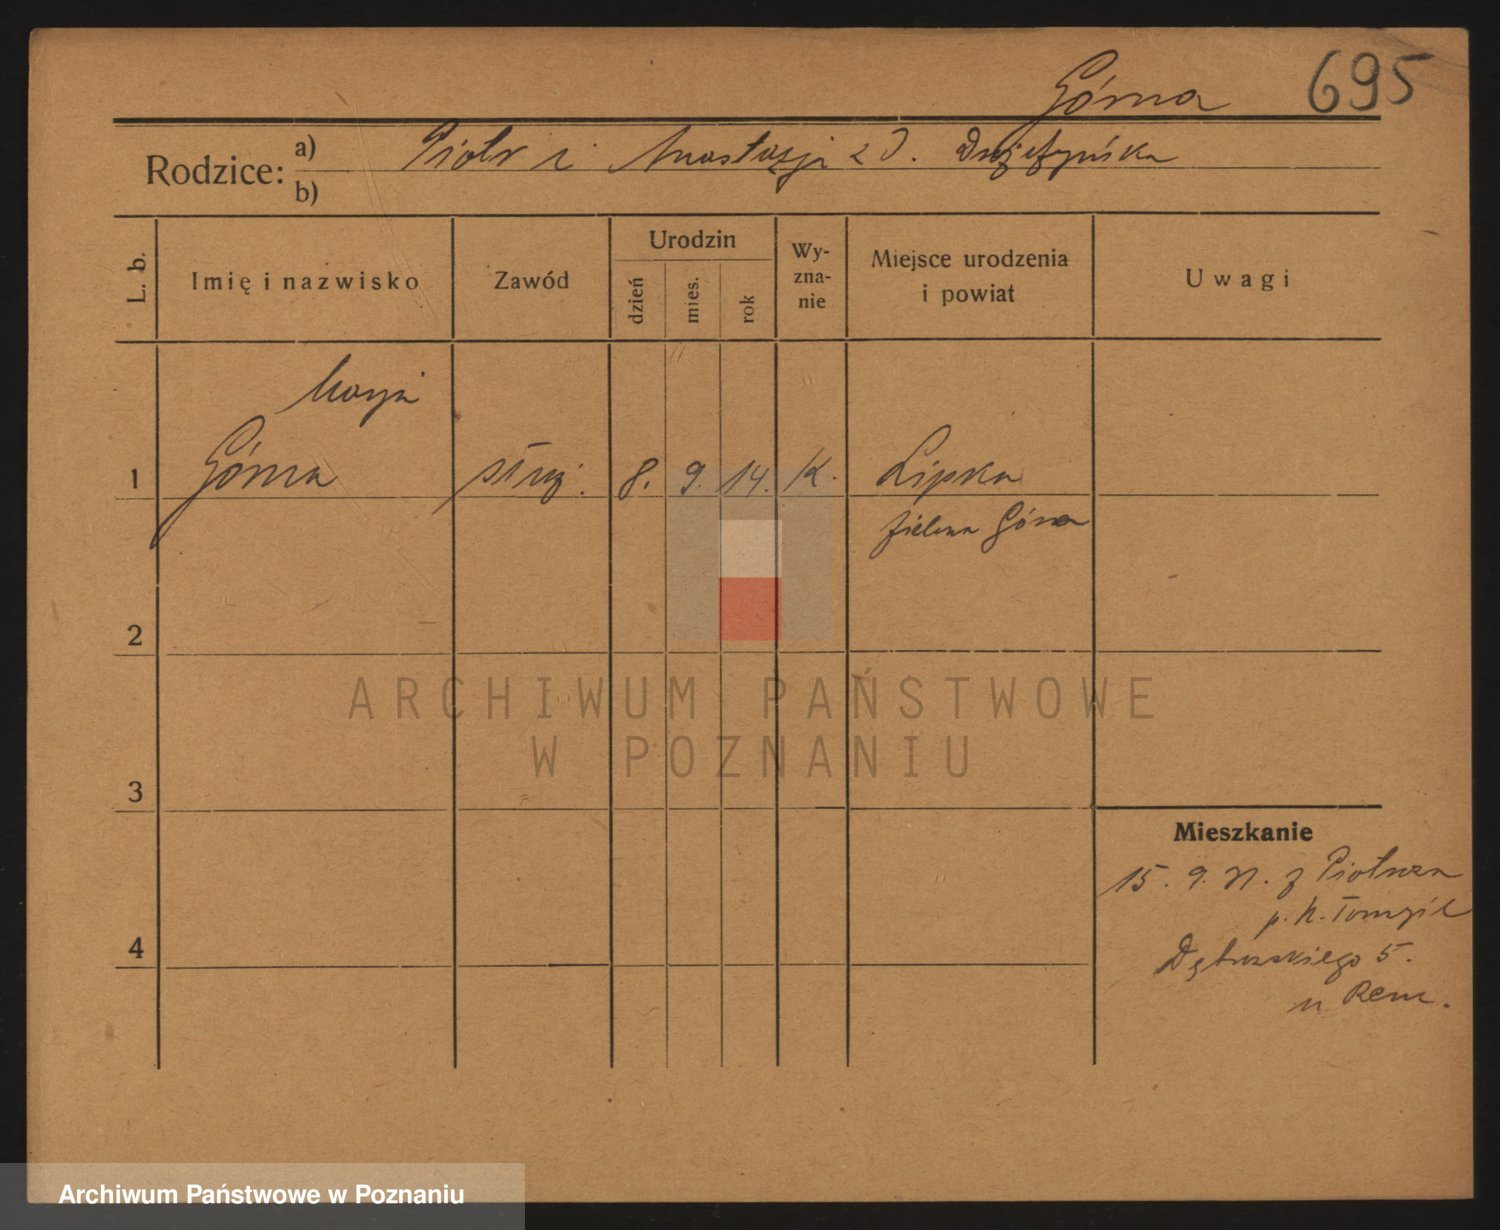 Górna 695
Rodzice: a) Piotr i Anastazja z d.
b)
L. b. Imię i nazwisko Zawód Urodzin dzień mies. rok Wy-zna-nie Miejsce urodzenia i powiat Uwagi
Marja
1 Górna służ. 8. 9. 14. K. Lipka
Zielona Góra
2
ARCHIWUM PAŃSTWOWE
W POZNANIU
3
Mieszkanie
15. 9. 31. z
p. N. Tomyśl
4
Dąbrowskiego 5.
u
Archiwum Państwowe w Poznaniu